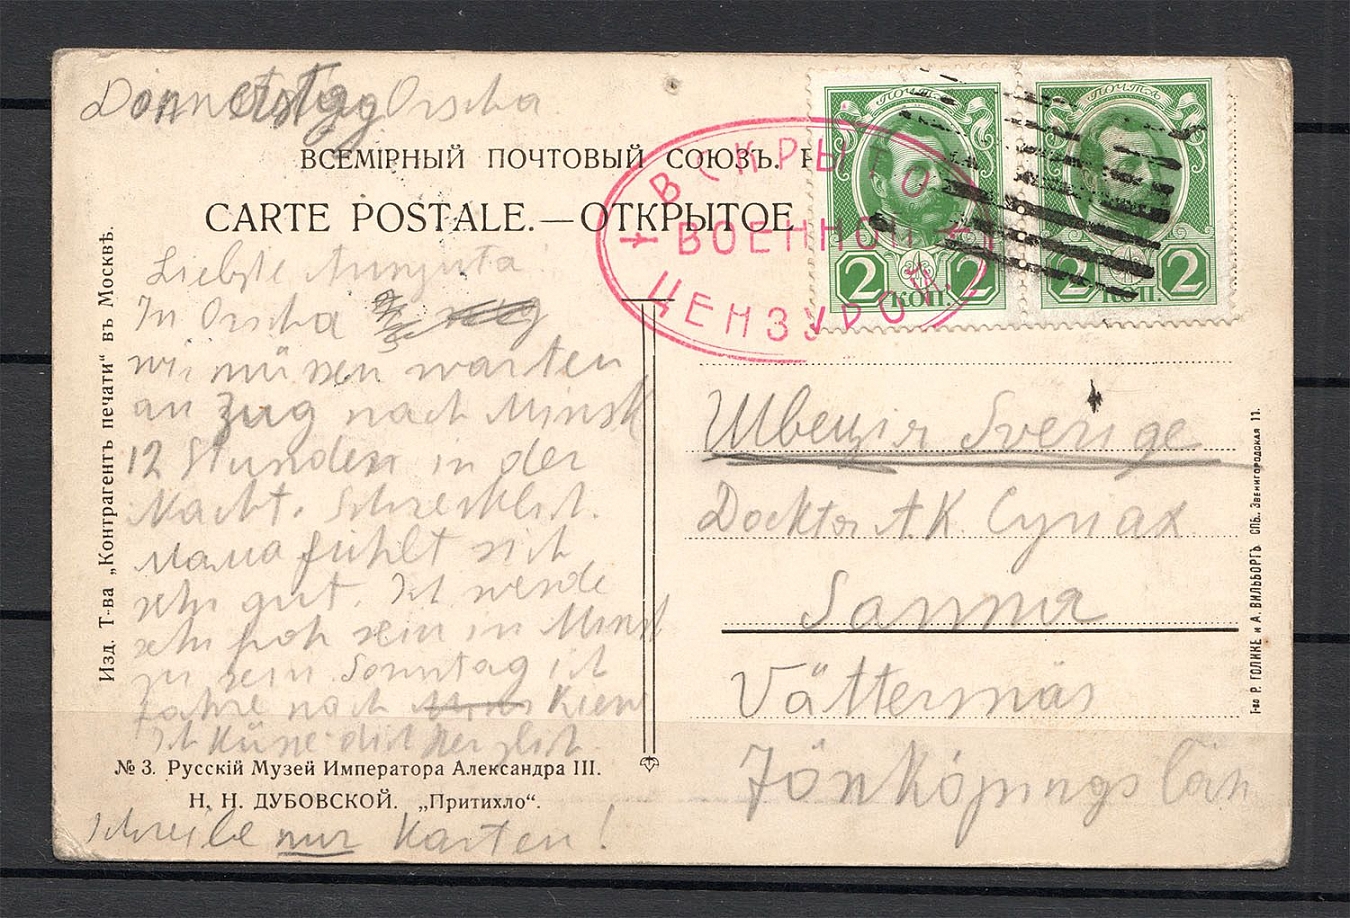 Donnerstag Orscha
ВСЕМІРНЫЙ ПОЧТОВЫЙ СОЮЗЪ.
CARTE POSTALE.—ОТКРЫТОЕ
ВСКРЫТО
ВОЕННОЙ
ЦЕНЗУРОЙ
ПОЧТА
2 КОП. 2
ПОЧТА
2 КОП. 2
Liebste Augusta
In Orscha
wir müssen warten
an Zug nach Minsk
12 Stunden in der
Nacht. Schrecklich.
Mama fühlt sich
sehr gut. Ich werde
sehr froh sein in Minsk
zu sein. Sonntag ich
fahre nach Kiew
Ich küsse dich herzlich.
Schreibe nur Karten!
Швеція Sverige
Docktor A.K. Cyriax
Sanna
Vättersnäs
Jönköpings Län
№ 3. Русскій Музей Императора Александра III.
Н. Н. ДУБОВСКОЙ. „Притихло“.
Изд. Т-ва „Контрагентъ печати“ въ Москвѣ.
Т-во Р. ГОЛИКЕ и А. ВИЛЬБОРГЪ. СПБ., Звенигородская 11.